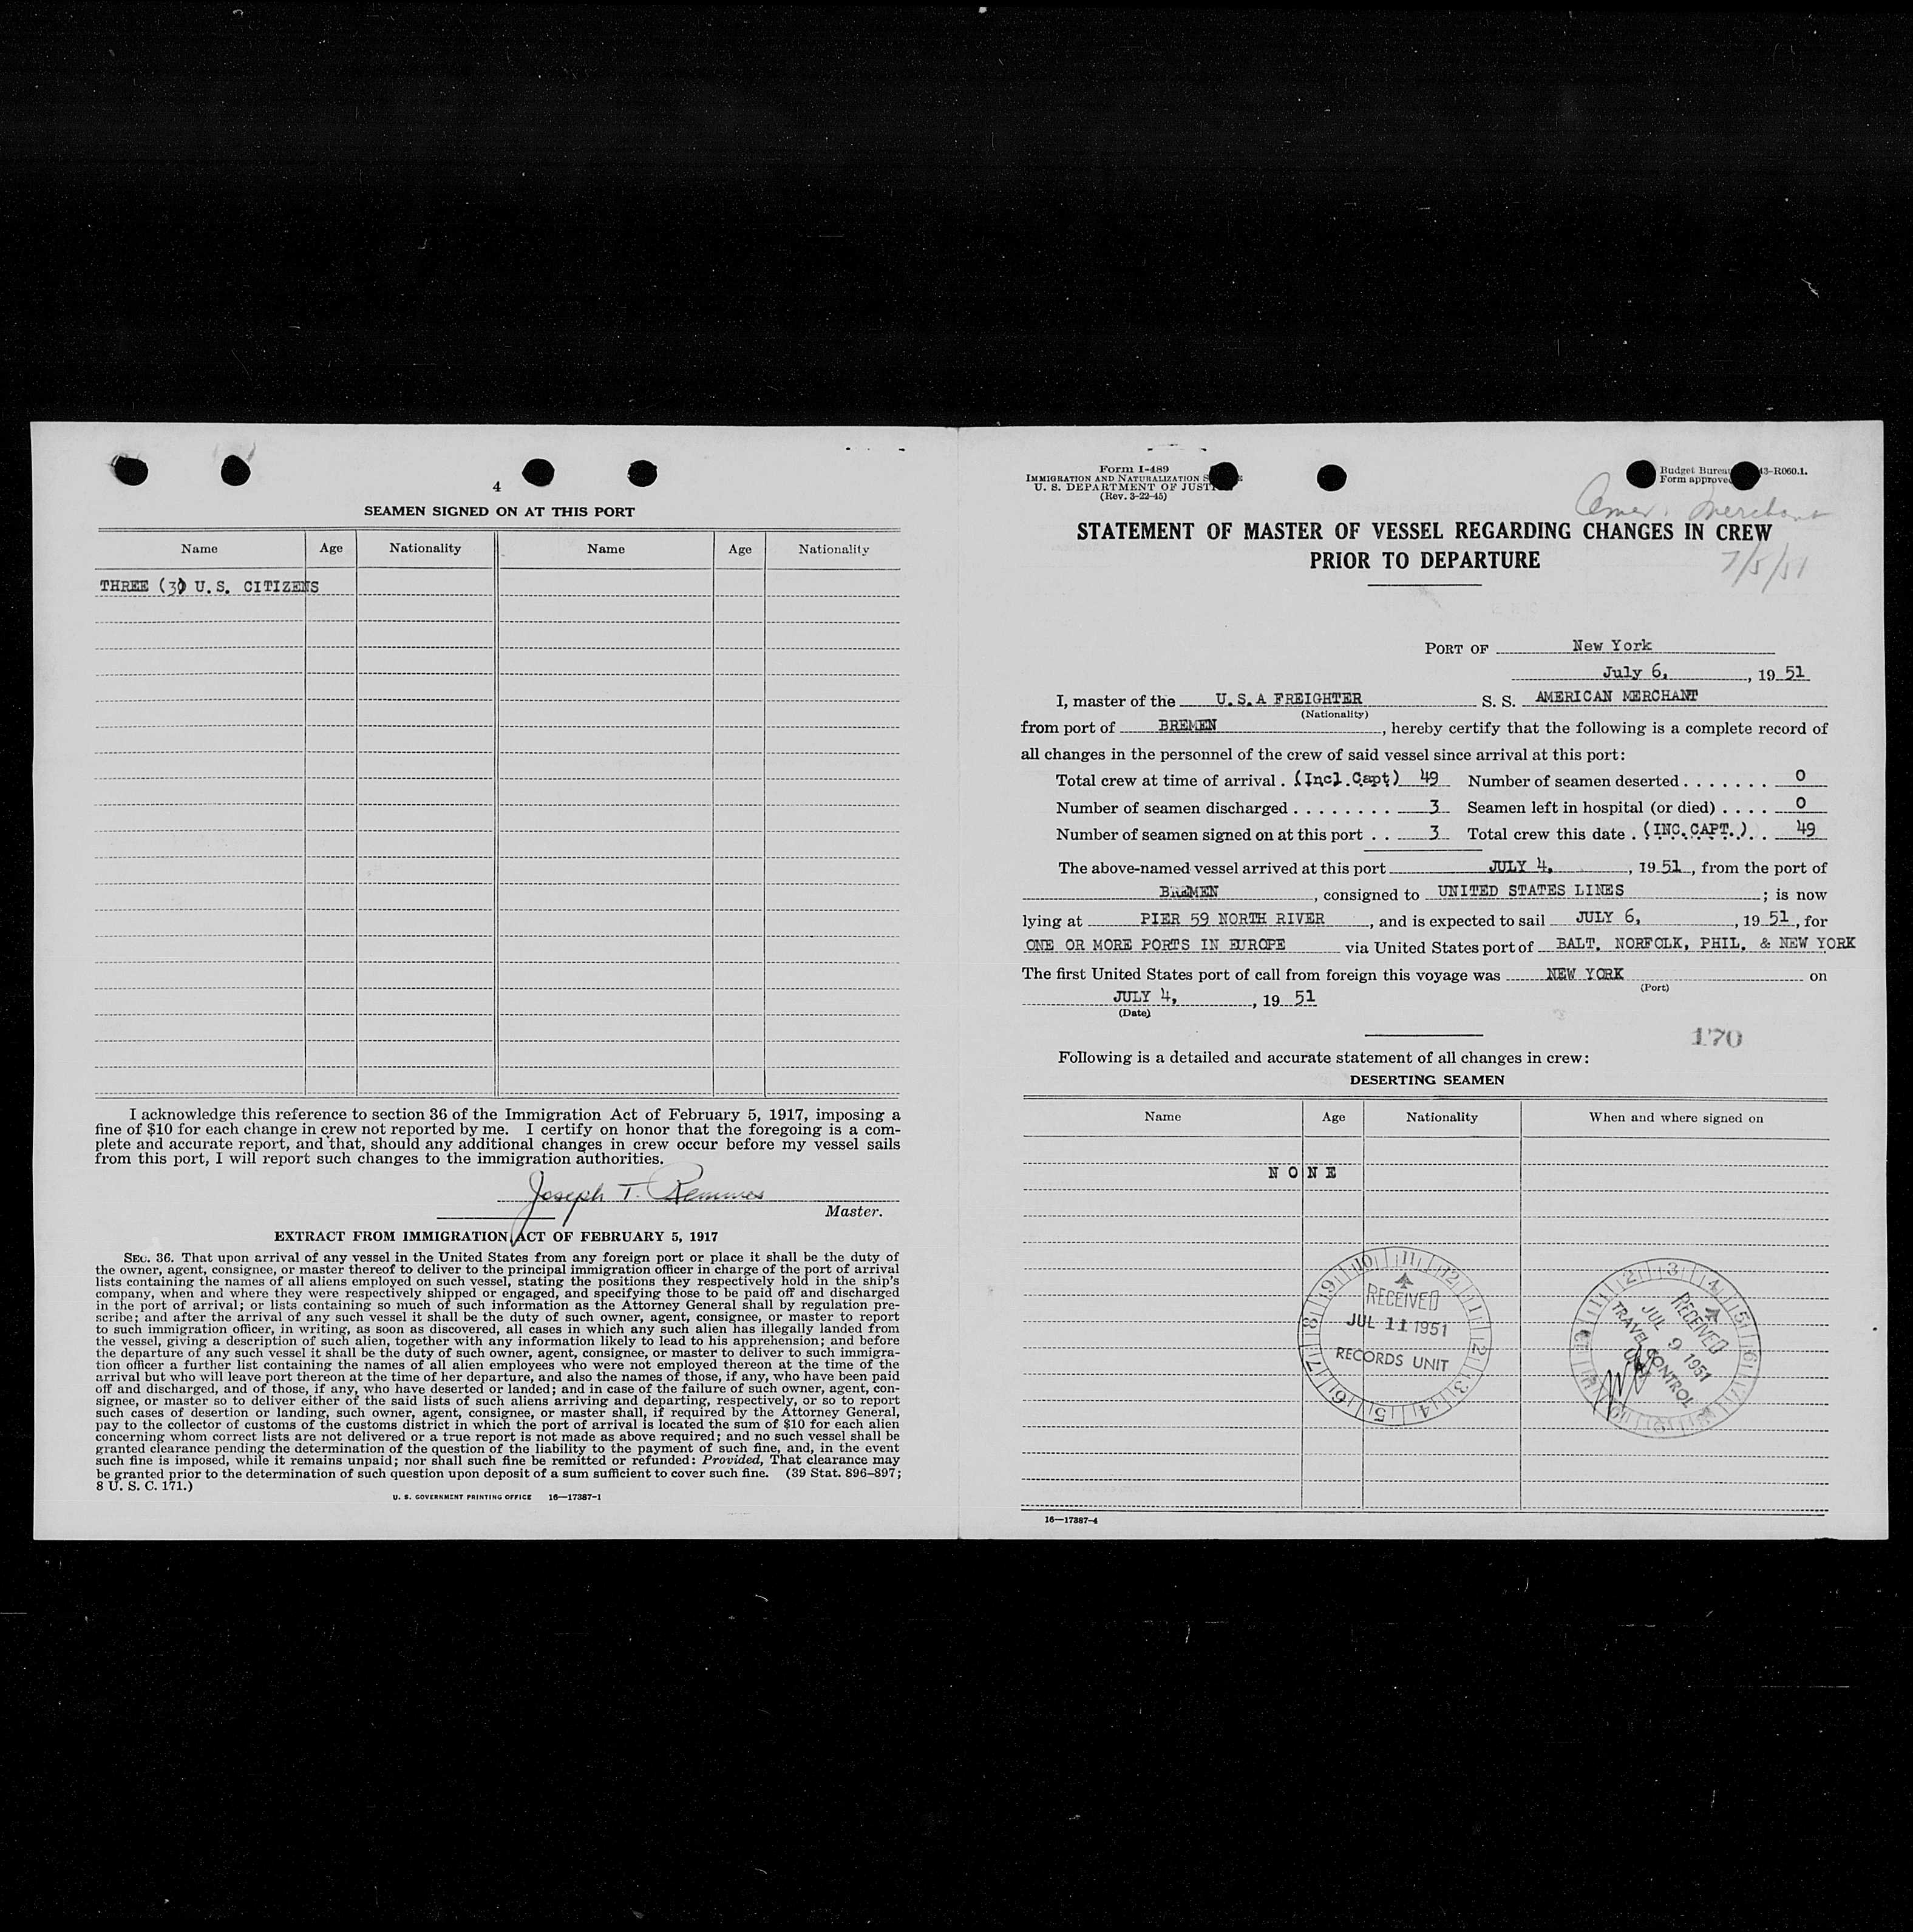 4
SEAMEN SIGNED ON AT THIS PORT
Name Age Nationality Name Age Nationality
THREE (3) U.S. CITIZENS
I acknowledge this reference to section 36 of the Immigration Act of February 5, 1917, imposing a
fine of $10 for each change in crew not reported by me. I certify on honor that the foregoing is a com-
plete and accurate report, and that, should any additional changes in crew occur before my vessel sails
from this port, I will report such changes to the immigration authorities.
Joseph T.
Master.
EXTRACT FROM IMMIGRATION ACT OF FEBRUARY 5, 1917
SEC. 36. That upon arrival of any vessel in the United States from any foreign port or place it shall be the duty of
the owner, agent, consignee, or master thereof to deliver to the principal immigration officer in charge of the port of arrival
lists containing the names of all aliens employed on such vessel, stating the positions they respectively hold in the ship's
company, when and where they were respectively shipped or engaged, and specifying those to be paid off and discharged
in the port of arrival; or lists containing so much of such information as the Attorney General shall by regulation pre-
scribe; and after the arrival of any such vessel it shall be the duty of such owner, agent, consignee, or master to report
to such immigration officer, in writing, as soon as discovered, all cases in which any such alien has illegally landed from
the vessel, giving a description of such alien, together with any information likely to lead to his apprehension; and before
the departure of any such vessel it shall be the duty of such owner, agent, consignee, or master to deliver to such immigra-
tion officer a further list containing the names of all alien employees who were not employed thereon at the time of the
arrival but who will leave port thereon at the time of her departure, and also the names of those, if any, who have been paid
off and discharged, and of those, if any, who have deserted or landed; and in case of the failure of such owner, agent, con-
signee, or master so to deliver either of the said lists of such aliens arriving and departing, respectively, or so to report
such cases of desertion or landing, such owner, agent, consignee, or master shall, if required by the Attorney General,
pay to the collector of customs of the customs district in which the port of arrival is located the sum of $10 for each alien
concerning whom correct lists are not delivered or a true report is not made as above required; and no such vessel shall be
granted clearance pending the determination of the question of the liability to the payment of such fine, and, in the event
such fine is imposed, while it remains unpaid; nor shall such fine be remitted or refunded: Provided, That clearance may
be granted prior to the determination of such question upon deposit of a sum sufficient to cover such fine. (39 Stat. 896-897;
8 U. S. C. 171.)
U. S. GOVERNMENT PRINTING OFFICE 16—17387-1
Form I-489
IMMIGRATION AND NATURALIZATION S
U. S. DEPARTMENT OF JUST
(Rev. 3-22-45)
Budget Bureau 43-R060.1.
Form approved
Amer. Merchant
STATEMENT OF MASTER OF VESSEL REGARDING CHANGES IN CREW
PRIOR TO DEPARTURE
7/5/51
PORT OF New York
July 6, , 19 51
I, master of the U.S.A FREIGHTER S. S. AMERICAN MERCHANT
(Nationality)
from port of BREMEN , hereby certify that the following is a complete record of
all changes in the personnel of the crew of said vessel since arrival at this port:
Total crew at time of arrival . (Incl.Capt) 49 Number of seamen deserted . . . . . . . 0
Number of seamen discharged . . . . . . . . 3 Seamen left in hospital (or died) . . . . 0
Number of seamen signed on at this port . . 3 Total crew this date . (INC.CAPT.) . . 49
The above-named vessel arrived at this port JULY 4, , 19 51 , from the port of
BREMEN , consigned to UNITED STATES LINES ; is now
lying at PIER 59 NORTH RIVER , and is expected to sail JULY 6, , 19 51 , for
ONE OR MORE PORTS IN EUROPE via United States port of BALT. NORFOLK, PHIL. & NEW YORK
The first United States port of call from foreign this voyage was NEW YORK on
(Port)
JULY 4, , 19 51
(Date)
170
Following is a detailed and accurate statement of all changes in crew:
DESERTING SEAMEN
Name Age Nationality When and where signed on
NONE
RECEIVED
JUL 11 1951
RECORDS UNIT
RECEIVED
JUL 9 1951
TRAVEL CONTROL
16—17387-4